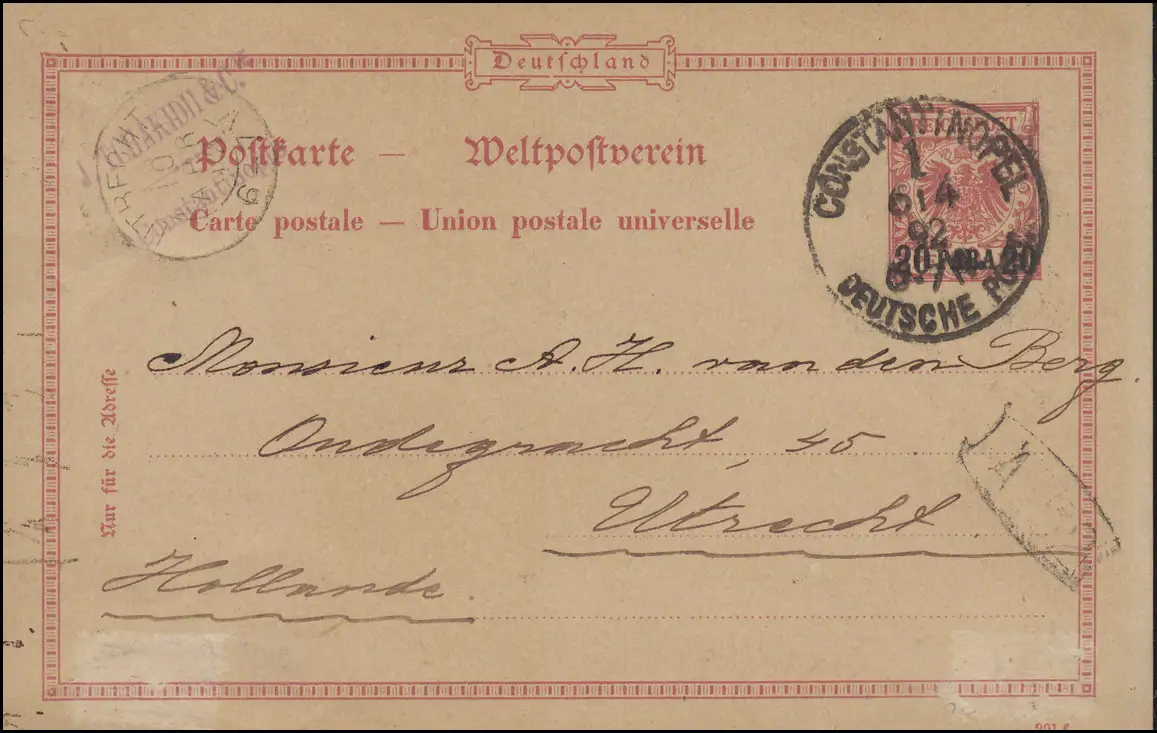 Deutschland
Postkarte — Weltpostverein
Carte postale — Union postale universelle
& Cie
UTRECHT
10
CONSTANTINOPEL
1
6/4
92
DEUTSCHE POST
20 PARA 20
Monsieur A. H. van den Berg.
Oudegracht, 45
Utrecht
Hollande.
Nur für die Adresse